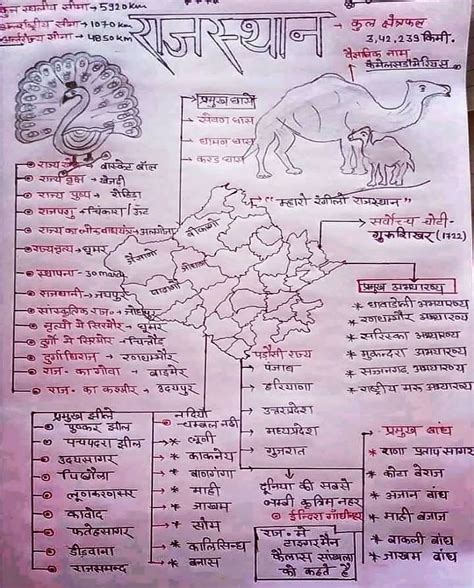 कुल स्थलीय सीमा → 5920km
अन्तर्राष्ट्रीय सीमा → 1070km
अन्तर्राज्यीय सीमा → 4850km
राजस्थान
कुल क्षेत्रफल
3,42,239 किमी.
वैज्ञानिक नाम
कैमेलस डोमेडेरियस
प्रमुख घासें
सेवण घास
धामण घास
करड घास
राज्य खेल → बास्केट बॉल
राज्य वृक्ष → खेजड़ी
राज्य पुष्प → रोहिड़ा
राजपशु → चिंकारा / ऊँट
राज्य का लोक वाद्ययंत्र → अलगोजा
राज्य नृत्य → घूमर
स्थापना - 30 march
राजधानी → जयपुर
सांस्कृतिक राज. → जोधपुर
नृत्यों में सिरमौर → घूमर
दुर्गों में सिरमौर → चित्तौड़
दुर्गाधिराज → रणथम्भौर
राज. का गोवा → बाड़मेर
राज. का कश्मीर → उदयपुर
"म्हारो रंगीलो राजस्थान"
सर्वोच्च चोटी -
गुरुशिखर (1722)
प्रमुख अभयारण्य
धावाडोली अभयारण्य
रणथम्भौर अभयारण्य
सरिस्का अभयारण्य
मुकन्दरा अभयारण्य
सज्जनगढ़ अभयारण्य
राष्ट्रीय मरु अभयारण्य
पड़ौसी राज्य
पंजाब
हरियाणा
उत्तरप्रदेश
मध्यप्रदेश
गुजरात
प्रमुख झीलें
पुष्कर झील
पचपदरा झील
उदयसागर
पिछौला
लूणकरणसर
कावोद
फतेहसागर
डीडवाना
राजसमन्द
नदियाँ
चम्बल नदी
लूनी
काकनेय
बाणगंगा
माही
जाखम
सोम
कालिसिन्ध
बनास
दुनिया की सबसे
लम्बी कृत्रिम नहर
इन्दिरा गाँधी नहर
राज. में
टाइगर मैन
कैलाश सांखला
को कहते है
प्रमुख बांध
राणा प्रताप सागर
कोटा बैराज
अजान बांध
माही बजाज
बाकली बांध
जाखम बांध